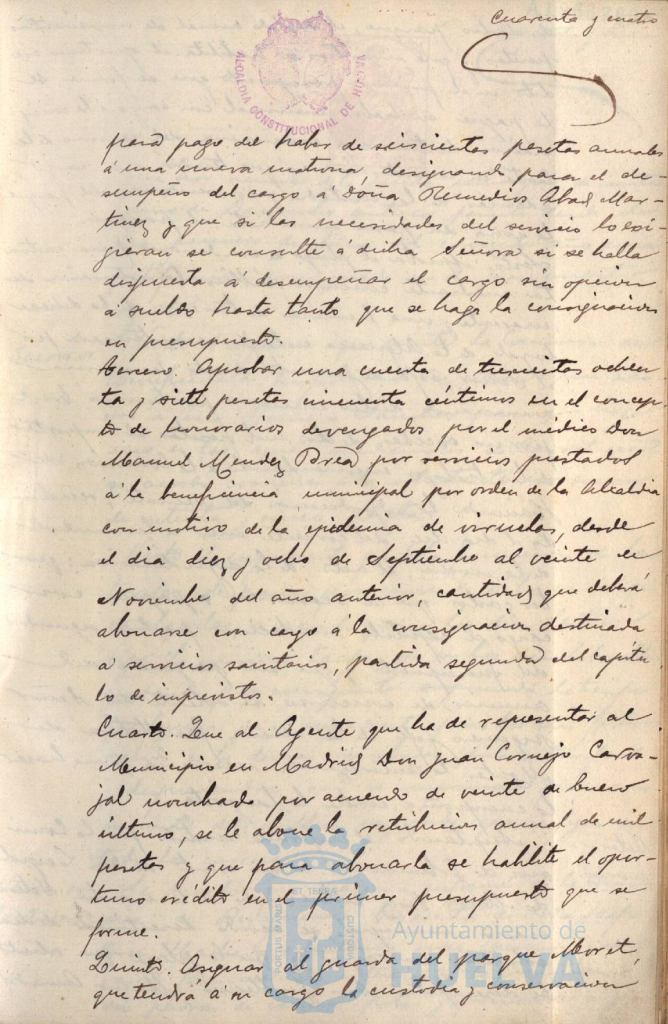 Cuarenta y cuatro
ALCALDIA CONSTITUCIONAL DE HUELVA
para pago del haber de seiscientas pesetas anuales
á una nueva matrona, designando para el de-
sempeño del cargo á Doña Remedios Abad Mar-
tinez y que si las necesidades del servicio lo exi-
gieran se consulte á dicha Señora si se halla
dispuesta á desempeñar el cargo sin opcion
á sueldo hasta tanto que se haga la consignacion
en presupuesto.
Tercero. Aprobar una cuenta de trescientas ochen
ta y siete pesetas cincuenta céntimos en el concep-
to de honorarios devengados por el médico Don
Manuel Mendez Brea por servicios prestados
á la beneficencia municipal por orden de la Alcaldia
con motivo de la epidemia de viruelas, desde
el dia diez y ocho de Septiembre al veinte de
Noviembre del año anterior, cantidad que deberá
abonarse con cargo á la consignacion destinada
a servicios sanitarios, partida segunda del capitu-
lo de imprevistos.
Cuarto. Que al Agente que ha de representar al
Municipio en Madrid Don Juan Cornejo Carva-
jal nombrado por acuerdo de veinte de Enero
último, se le abone la retribucion anual de mil
pesetas y que para abonarla se habilite el opor-
tuno crédito en el primer presupuesto que se
forme.
Quinto. Asignar al guarda del parque Moret,
que tendrá á su cargo la custodia y conservacion
PORTUS MARIS ET TERRAE CUSTODIA
Ayuntamiento de
HUELVA